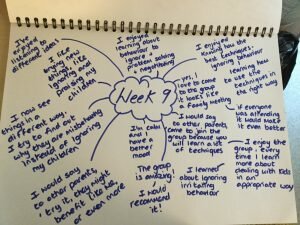 Week 9
I've
enjoyed
listening to
different ideas!
I like
trying new
things like
ignoring and
praising my
children
I enjoyed
learning about
behaviour to
ignore +
problem solving
+ negotiating
I enjoyed
knowing how the
best techniques/
ignoring behaviour
learning how
to use the
techniques in
the right way
yes, I
love to come
to the group
it looks like
a family meeting
if everyone was
attending it
would make it
even better
I enjoy the
group, every
time I learn
more about
dealing with kids
in an
appropriate way
I would say
to other parents
come to join the
group because you
will learn a lot
of techniques
I learned
about ignoring
irritating
behaviour
I'm calm
and I have a
better mood
The group
is amazing!
I would
recommend
it!
I would say
to other parents,
try it, they might
benefit like us
or even more
I now see
things in a
different way.
I try to find out
why they are misbehaving
instead of ignoring
my children